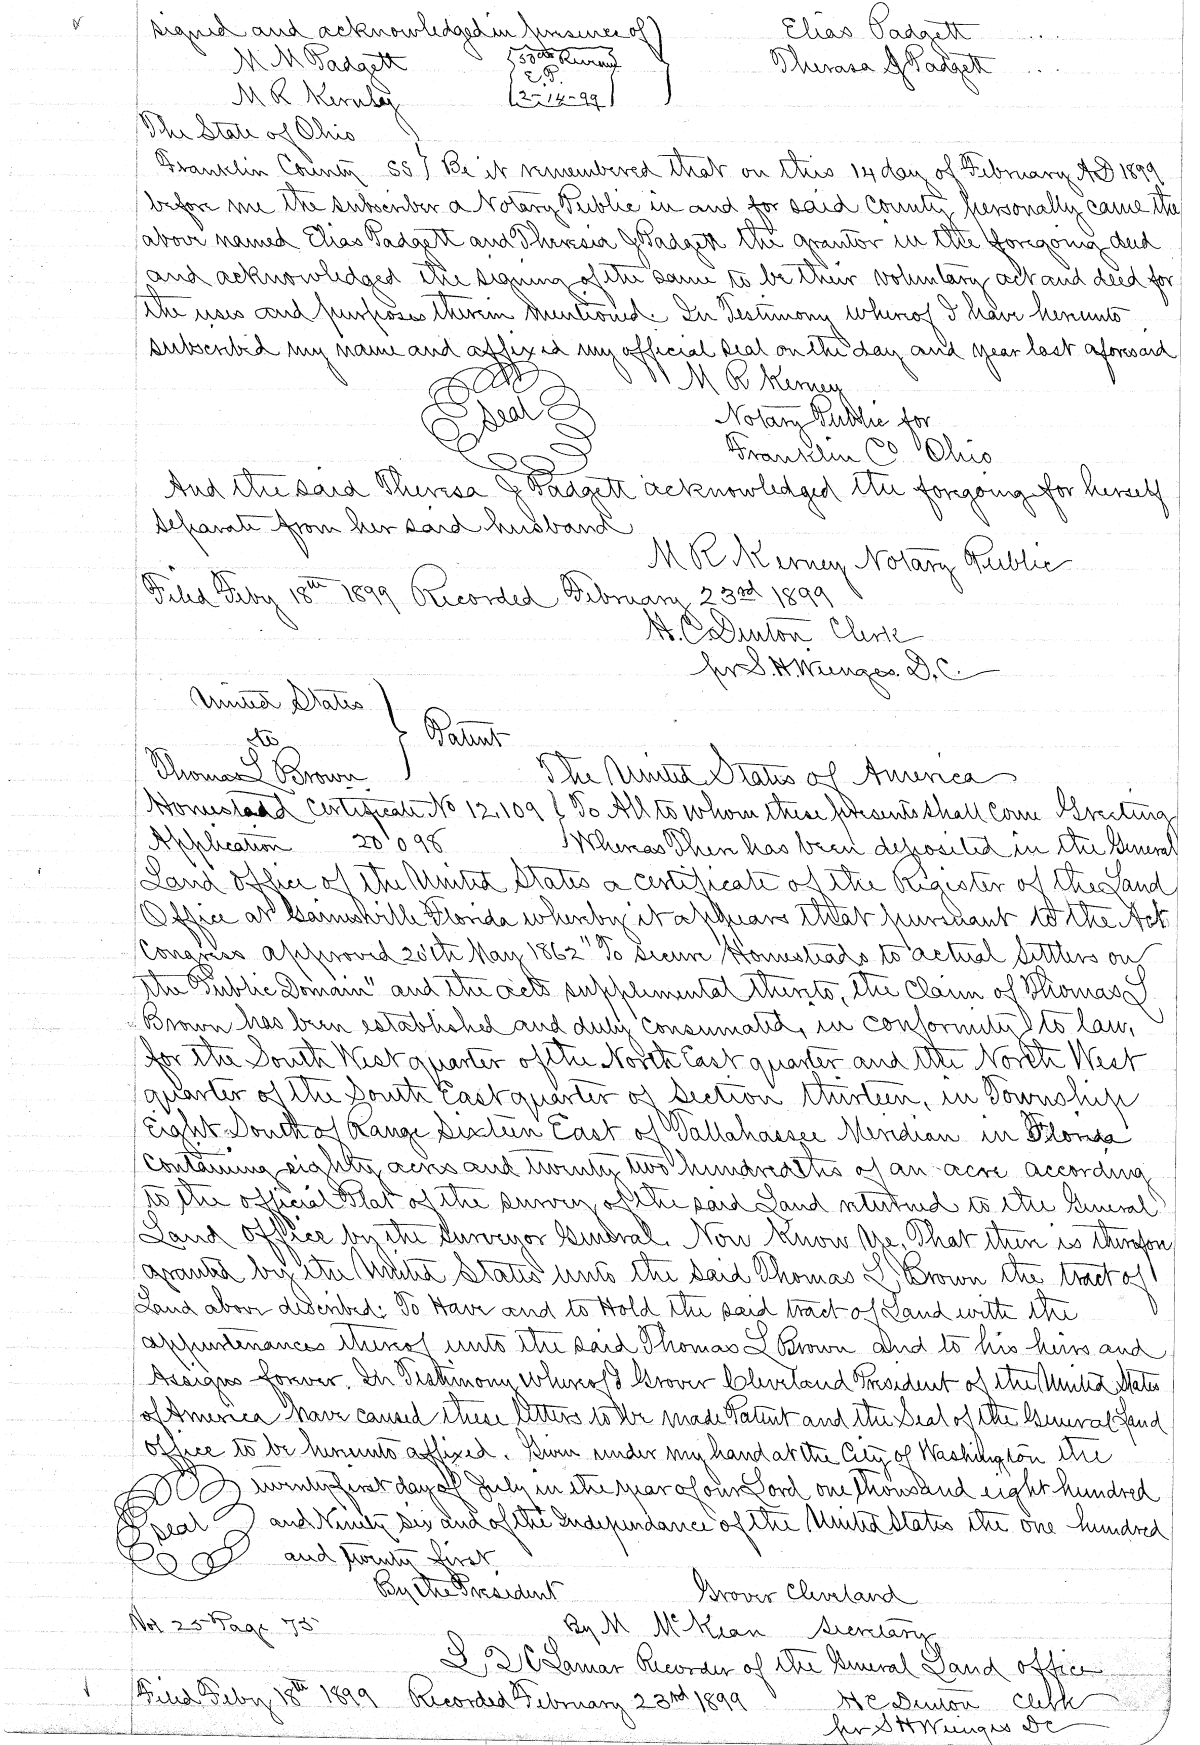 signed and acknowledged in presence of } Elias Padgett
M M Padgett 50cts Revenue Therasa J Padgett
E.P.
M R Kernley 2-14-99
The State of Ohio
Franklin County SS } Be it remembered that on this 14 day of February AD 1899
before me the subscriber a Notary Public in and for said County personally came the
above named Elias Padgett and Theresia J Padgett the grantor in the foregoing deed
and acknowledged the signing of the same to be their voluntary act and deed for
the uses and purposes therein mentioned. In Testimony whereof I have hereunto
subscribed my name and affixed my official seal on the day and year last aforesaid
seal M R Kerney
Notary Public for
Franklin Co Ohio
And the said Theresa J Padgett acknowledged the foregoing for herself
separate from her said husband
M R Kerney Notary Public
Filed Feby 18th 1899 Recorded February 23rd 1899
H. C. Denton Clerk
per S. H. Wienges. D. C.
United States
to } Patent
Thomas L Brown The United States of America
Homestead Certificate No 12,109 } To All to whom these presents shall come Greeting
Application 20098 Whereas There has been deposited in the General
Land Office of the United States a certificate of the Register of the Land
Office at Gainesville Florida whereby it appears that pursuant to the Act
Congress approved 20th May 1862 "To secure Homesteads to actual Settlers on
the Public Domain" and the acts supplemental thereto, the Claim of Thomas L
Brown has been established and duly consumated, in conformity to law,
for the South West quarter of the North East quarter and the North West
quarter of the South East quarter of Section thirteen, in Township
Eight South of Range Sixteen East of Tallahassee Meridian in Florida
containing eighty acres and twenty two hundredths of an acre according
to the official Plat of the survey of the said Land returned to the General
Land Office by the Surveyor General. Now Know Ye, That there is therefon
granted by the United States unto the said Thomas L Brown the tract of
Land above discribed: To Have and to Hold the said tract of Land with the
appurtenances thereof unto the said Thomas L Brown and to his heirs and
Assigns forever. In Testimony Whereof I Grover Cleveland President of the United States
of America have caused these letters to be made Patent and the Seal of the General Land
Office to be hereunto affixed. Given under my hand at the City of Washington the
twenty first day of July in the year of our Lord one thousand eight hundred
seal and Ninety six and of the Independance of the United States the one hundred
and twenty first
By the President Grover Cleveland
Vol 25 Page 75 By M McKean Secretary
L. Q C Lamar Recorder of the General Land office
Filed Feby 18th 1899 Recorded February 23rd 1899 H C Denton Clerk
per S H Wienges DC